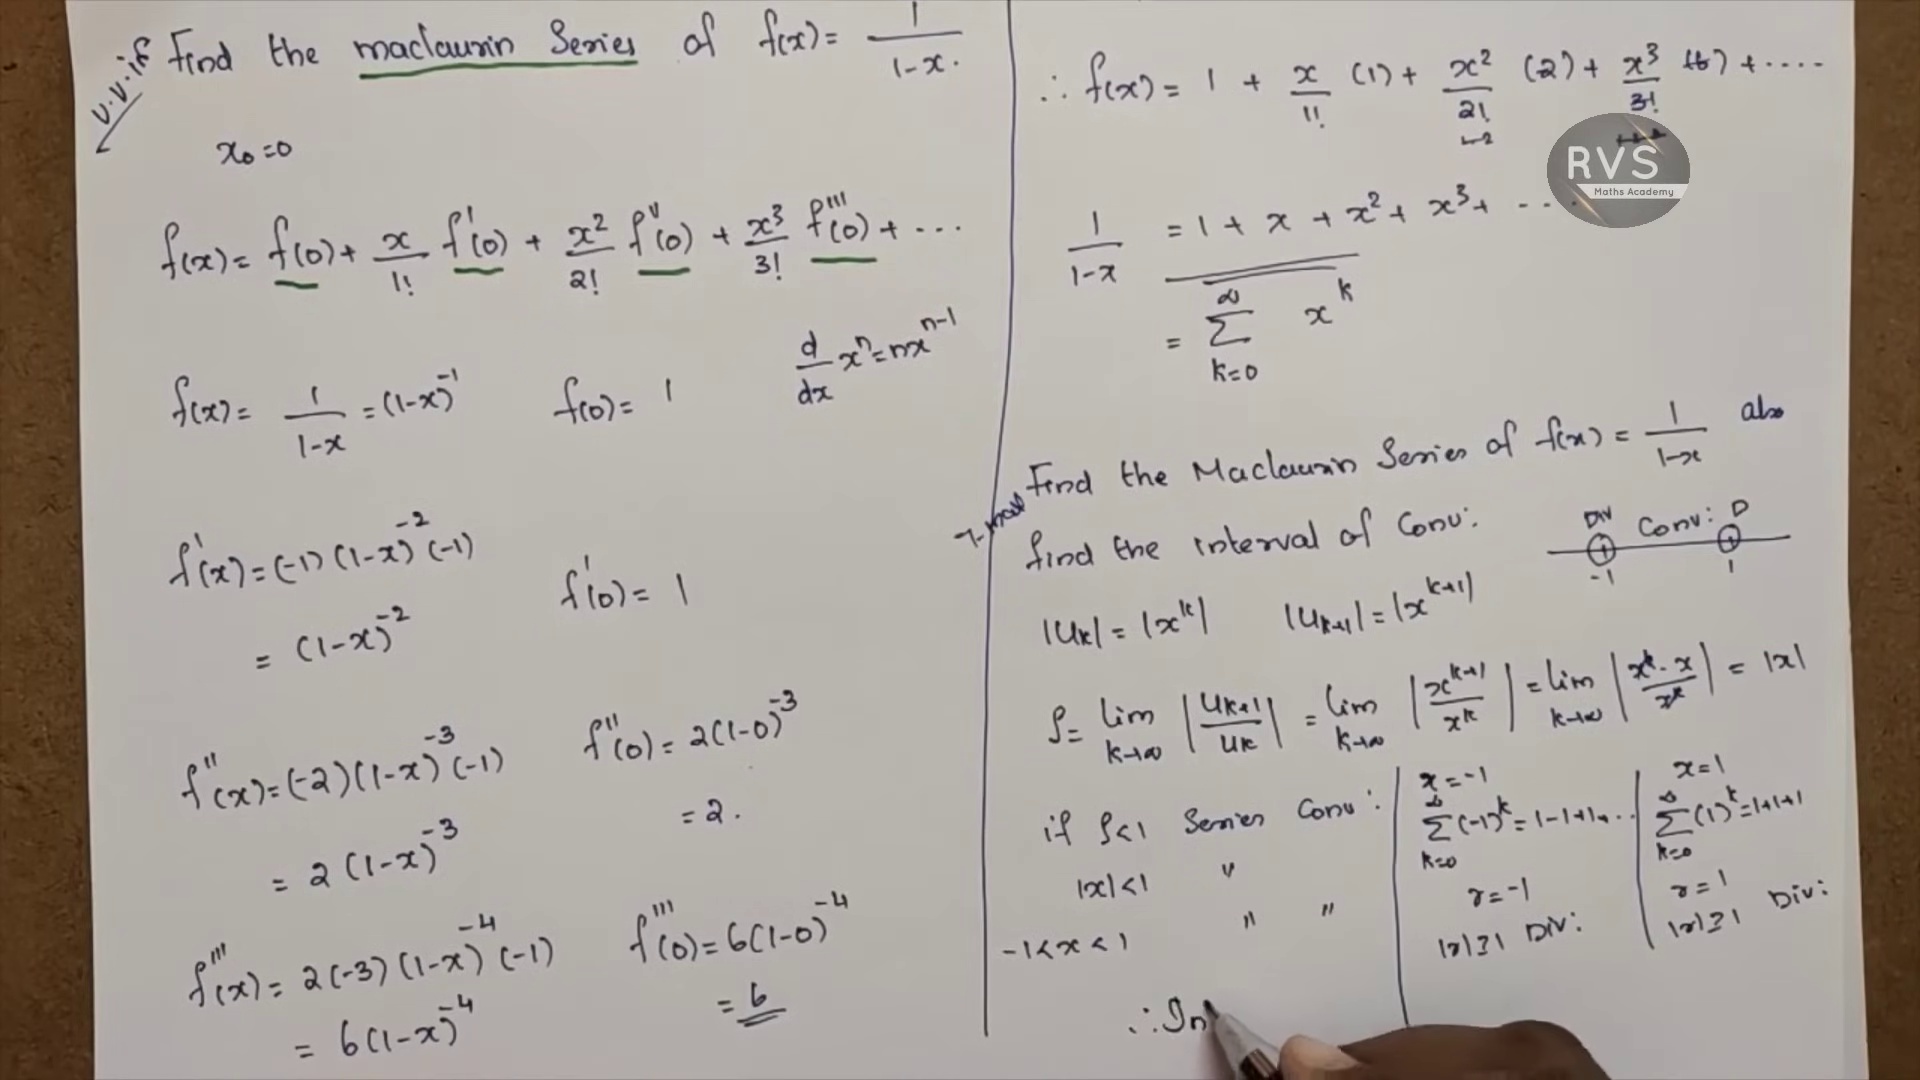 V.V.if Find the maclaurin Series of f(x) = 1/(1-x).
x₀ = 0
f(x) = f(0) + x/1! f'(0) + x²/2! f''(0) + x³/3! f'''(0) + ...
d/dx xⁿ = nxⁿ⁻¹
f(x) = 1/(1-x) = (1-x)⁻¹ f(0) = 1
f'(x) = (-1)(1-x)⁻²(-1)
= (1-x)⁻² f'(0) = 1
f''(x) = (-2)(1-x)⁻³(-1) f''(0) = 2(1-0)⁻³
= 2(1-x)⁻³ = 2.
f'''(x) = 2(-3)(1-x)⁻⁴(-1) f'''(0) = 6(1-0)⁻⁴
= 6(1-x)⁻⁴ = 6
∴ f(x) = 1 + x/1! (1) + x²/2! (2) + x³/3! (6) + ....
1·2
RVS
Maths Academy
1/(1-x) = 1 + x + x² + x³ + ...
= ∑_{k=0}^{∞} x^k
Find the Maclaurin Series of f(x) = 1/(1-x) also
find the interval of Conv:
Div Conv: D
-1 1
|Uk| = |x^k| |Uk+1| = |x^{k+1}|
ρ = lim_{k→∞} |Uk+1/Uk| = lim_{k→∞} |x^{k+1}/x^k| = lim_{k→∞} |x^k·x/x^k| = |x|
if ρ<1 Series Conv:
|x|<1 "
-1<x<1 " "
x = -1
∑_{k=0}^{∞} (-1)^k = 1-1+1..
r = -1
|r|≥1 Div:
x = 1
∑_{k=0}^{∞} (1)^k = 1+1+1
r = 1
|r|≥1 Div:
∴ In